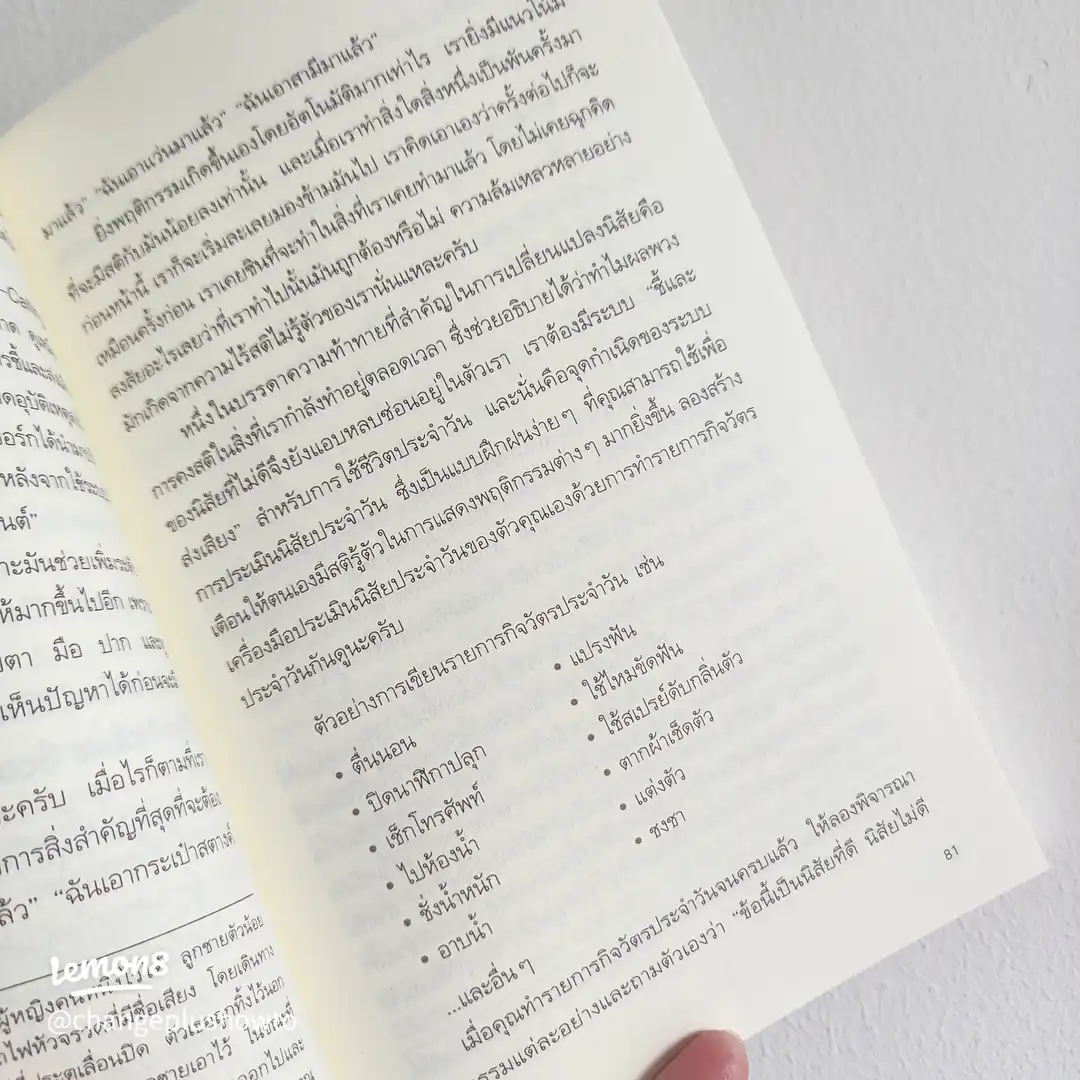 -Calli
าด
รชี้และส่ง
ดอุบัติเหตุ
อร์กได้นำ
หลังจากใช้ระบบ
นต์”
าะมันช่วยเพิ่มระดับ
ห้มากขึ้นไปอีก เพราะ
ตา มือ ปาก และ
เห็นปัญหาได้ก่อนจะ
ะครับ เมื่อไรก็ตามที่เรา
การสิ่งสำคัญที่สุดที่จะต้อง
ล้ว” “ฉันเอากระเป๋าสตางค์
ผู้หญิงคนหนึ่ง ลูกชายตัวน้อย
ถไฟหัวจรวดที่มีชื่อเสียง โดยเดินทาง
ที่ประตูเลื่อนปิด ทิ้งไว้นอก
ชายเอาไว้ ในขณะที่
ออกไปและ
มาแล้ว” “ฉันเอาแว่นมาแล้ว” “ฉันเอาสามีมาแล้ว”
ยิ่งพฤติกรรมเกิดขึ้นเองโดยอัตโนมัติมากเท่าไร เรายิ่งมีแนวโน้ม
ที่จะมีสติกับมันน้อยลงเท่านั้น และเมื่อเราทำสิ่งใดสิ่งหนึ่งเป็นพันครั้งมา
ก่อนหน้านี้ เราก็จะเริ่มละเลยมองข้ามมันไป เราคิดเอาเองว่าครั้งต่อไปก็จะ
เหมือนครั้งก่อน เราเคยชินที่จะทำในสิ่งที่เราเคยทำมาแล้ว โดยไม่เคยฉุกคิด
สงสัยอะไรเลยว่าที่เราทำไปนั้นมันถูกต้องหรือไม่ ความล้มเหลวหลายอย่าง
มักเกิดจากความไร้สติไม่รู้ตัวของเรานั่นแหละครับ
หนึ่งในบรรดาความท้าทายที่สำคัญในการเปลี่ยนแปลงนิสัยคือ
การคงสติในสิ่งที่เรากำลังทำอยู่ตลอดเวลา ซึ่งช่วยอธิบายได้ว่าทำไมผลพวง
ของนิสัยที่ไม่ดีจึงยังแอบหลบซ่อนอยู่ในตัวเรา เราต้องมีระบบ “ชี้และ
ส่งเสียง” สำหรับการใช้ชีวิตประจำวัน และนั่นคือจุดกำเนิดของระบบ
การประเมินนิสัยประจำวัน ซึ่งเป็นแบบฝึกฝนง่ายๆ ที่คุณสามารถใช้เพื่อ
เตือนให้ตนเองมีสติรู้ตัวในการแสดงพฤติกรรมต่างๆ มากยิ่งขึ้น ลองสร้าง
เครื่องมือประเมินนิสัยประจำวันของตัวคุณเองด้วยการทำรายการกิจวัตร
ประจำวันกันดูนะครับ
ตัวอย่างการเขียนรายการกิจวัตรประจำวัน เช่น
• ตื่นนอน
• ปิดนาฬิกาปลุก
• เช็กโทรศัพท์
• ไปห้องน้ำ
• ชั่งน้ำหนัก
• อาบน้ำ
• แปรงฟัน
• ใช้ไหมขัดฟัน
• ใช้สเปรย์ดับกลิ่นตัว
• ตากผ้าเช็ดตัว
• แต่งตัว
• ชงชา
...และอื่นๆ
เมื่อคุณทำรายการกิจวัตรประจำวันจนครบแล้ว ให้ลองพิจารณา
กรรมแต่ละอย่างและถามตัวเองว่า “ข้อนี้เป็นนิสัยที่ดี นิสัยไม่ดี
81
lemon8
@changeplushowto